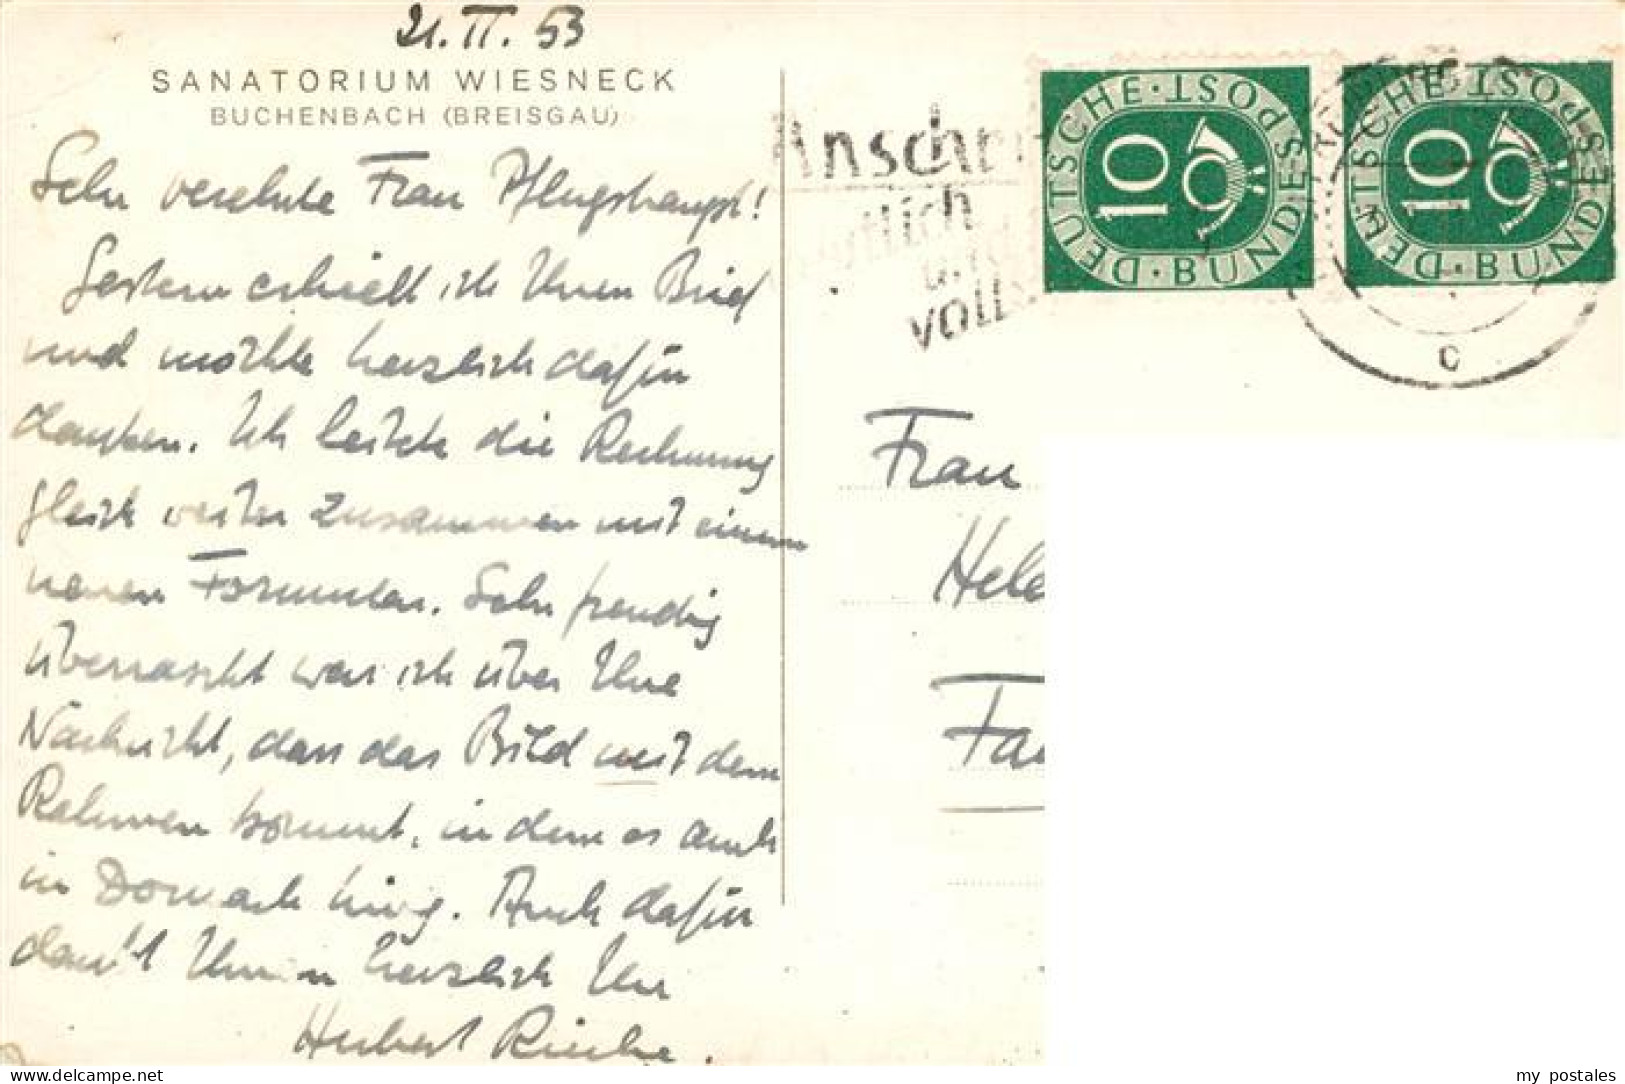 21. II. 53
SANATORIUM WIESNECK
BUCHENBACH (BREISGAU)
Sehr verehrte Frau Pflugshaupt!
Gestern erhielt ich Ihren Brief
und möchte herzlich dafür
danken. Ich leitete die Rechnung
gleich weiter zusammen mit einem
neuen Formular. Sehr freudig
überrascht war ich über Ihre
Nachricht, dass das Bild mit dem
Rahmen kommt, in dem es auch
in Dornach hing. Auch dafür
dankt Ihnen herzlich Ihr
Hubert
Anschri
lich
voll
DEUTSCHE · BUNDESPOST
10
DEUTSCHE · BUNDESPOST
10
c
Frau
Hele
Fa
my postales